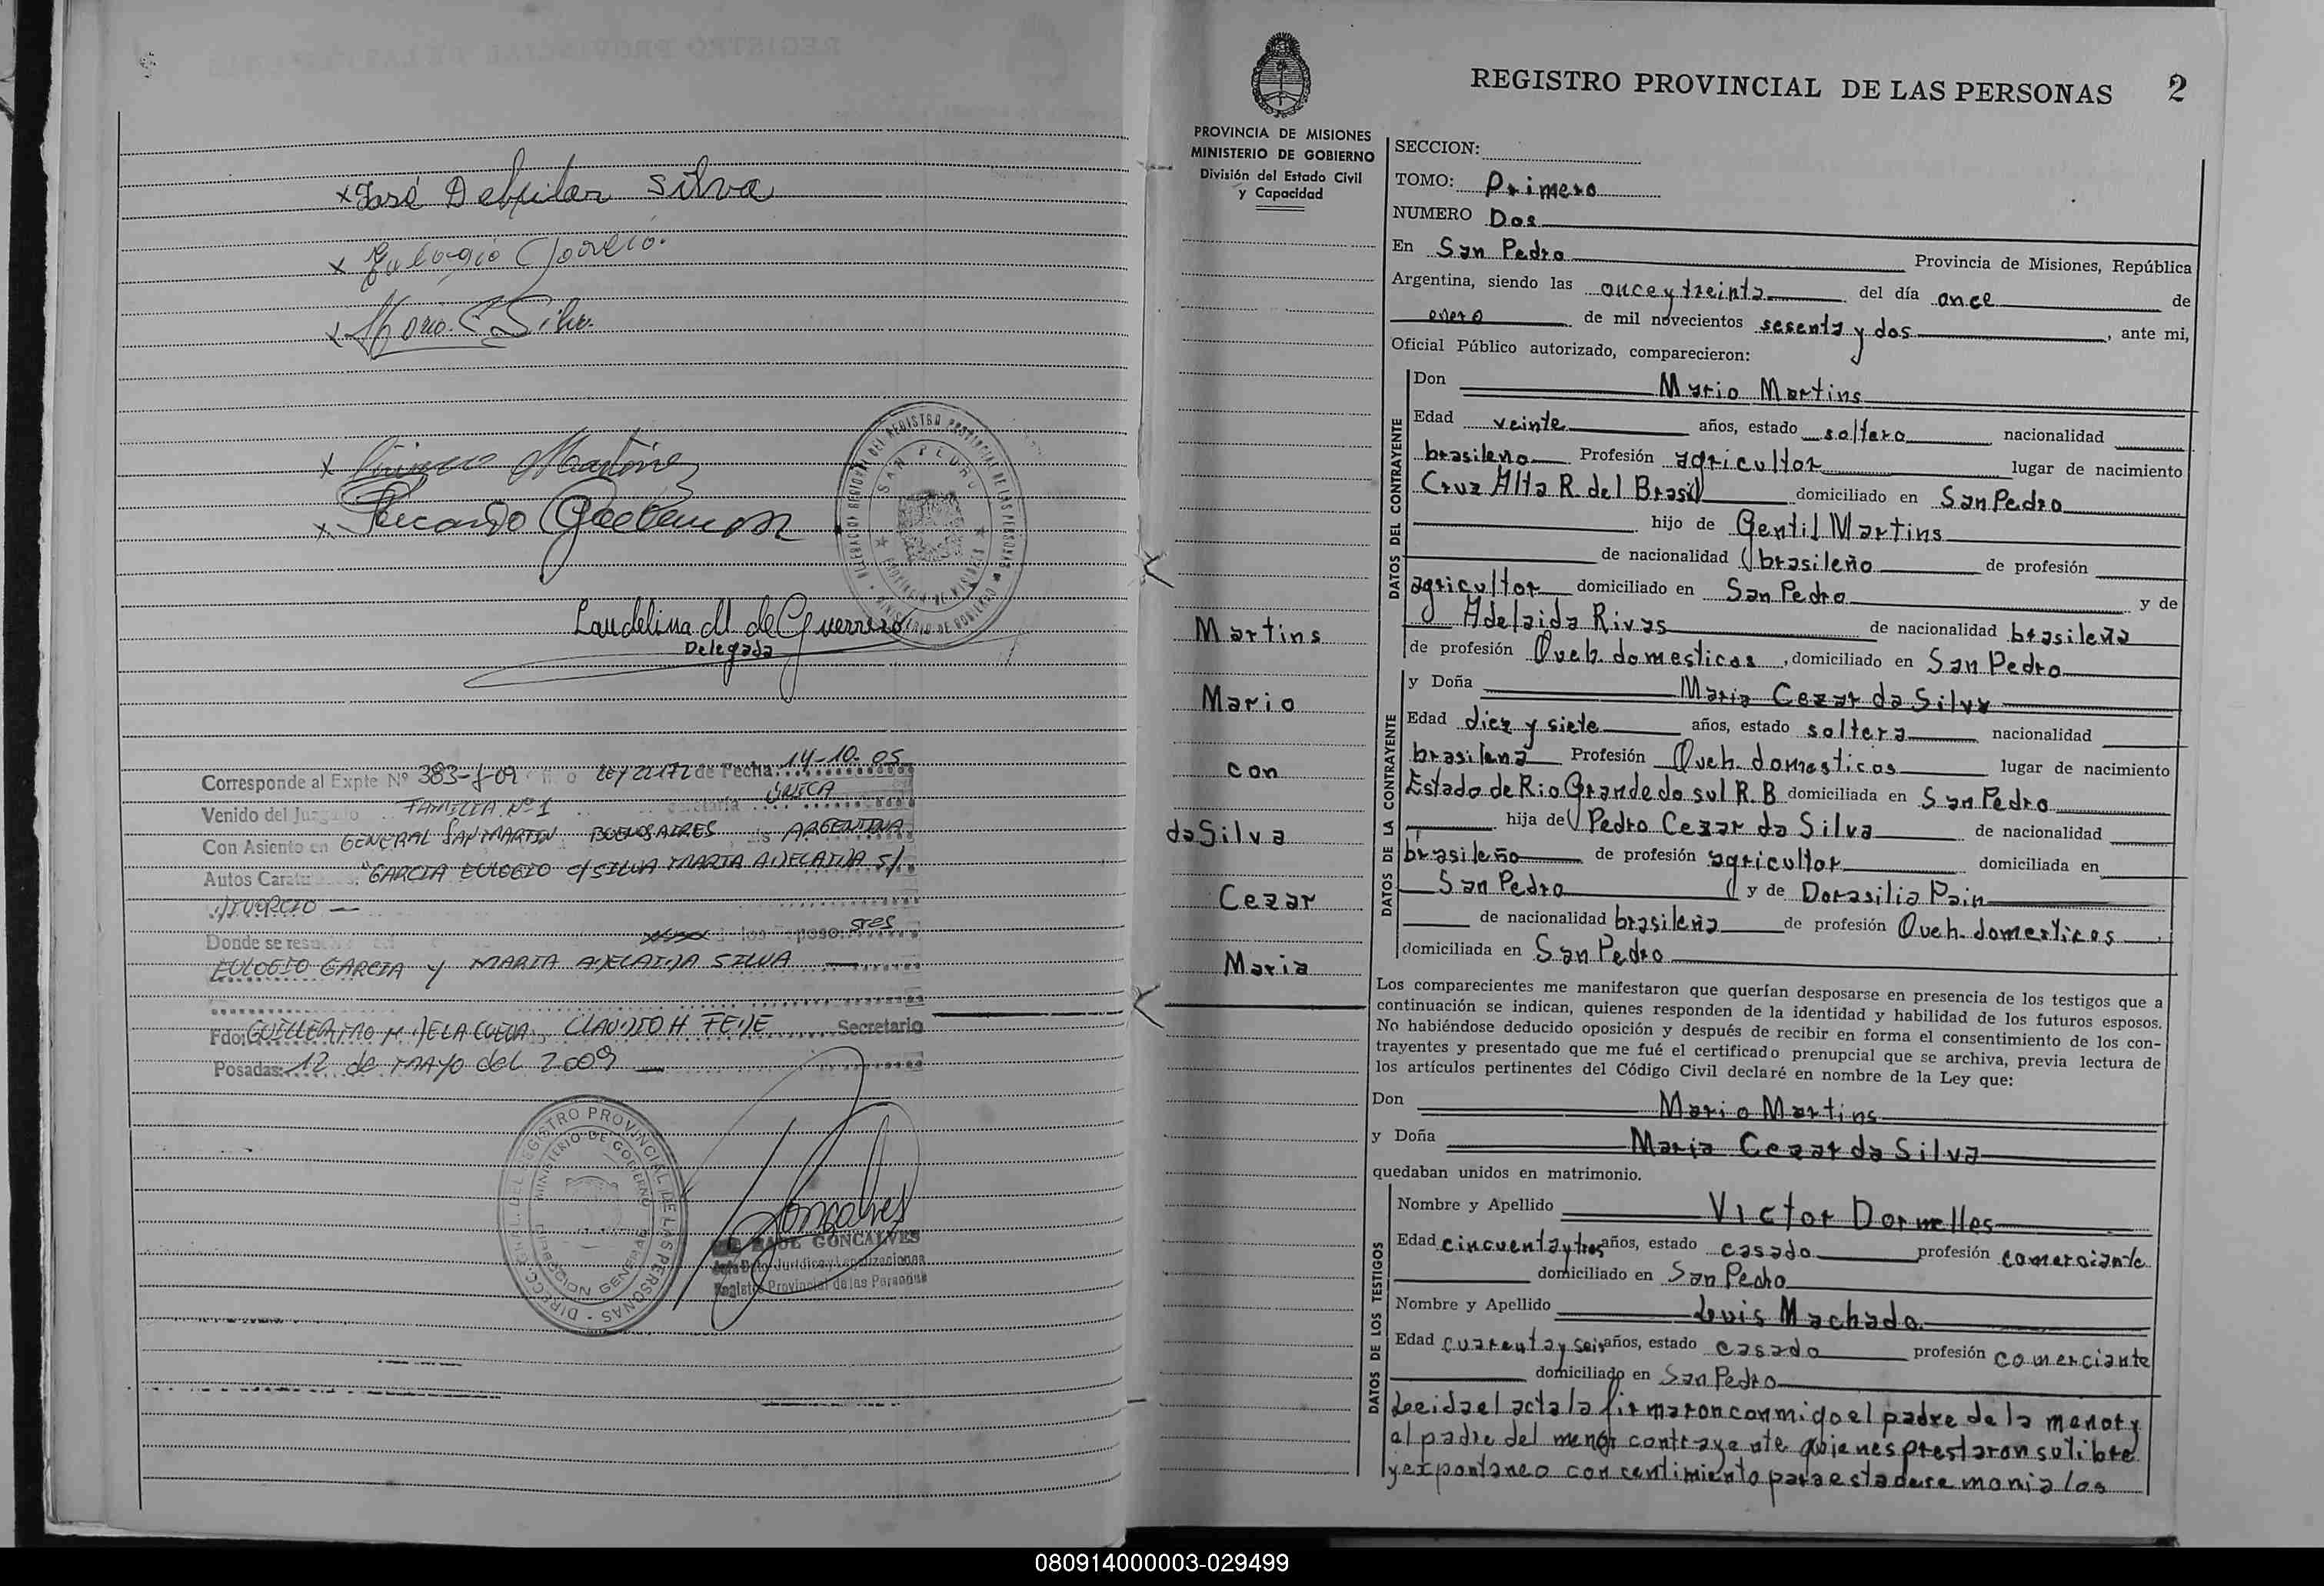 x José Debilar Silva
x Eulogio García.
x María A Silva.
x Martins
x Ricardo
Laudelina M de Guerrero
Delegada
DELEGACION REGIONAL DEL REGISTRO PROVINCIAL DE LAS PERSONAS
MINISTERIO DE GOBIERNO
SAN PEDRO
PROVINCIA DE MISIONES
Corresponde al Expte Nº 383-J-09 LEY 22172 de Fecha: 14-10-05
Venido del Juzgado FAMILIA Nº 1 Secretaría UNICA
Con Asiento en GENERAL SAN MARTIN BUENOS AIRES ARGENTINA
Autos Carat "GARCIA EULOGIO C/ SILVA MARIA ADELAIDA S/
DIVORCIO —
Donde se resu de los Esposo: SRES
EULOGIO GARCIA Y MARIA ADELAIDA SILVA —
Fdo: GUILLERMO M. DE LA CUEVA CLAUDIO H. FEDE Secretario
Posadas: 12 de MAYO del 2009 —
DIRECC. GENL. DEL REGISTRO PROVINCIAL DE LAS PERSONAS
MINISTERIO DE GOBIERNO
DIRECCION GENERAL
Goncalves
GONCALVES
Jefe Dpto. Jurídico y Legalizaciones
Registro Provincial de las Personas
REGISTRO PROVINCIAL DE LAS PERSONAS 2
PROVINCIA DE MISIONES
MINISTERIO DE GOBIERNO
División del Estado Civil
y Capacidad
Martins
Mario
con
da Silva
Cezar
Maria
SECCION:
TOMO: Primero
NUMERO Dos
En San Pedro Provincia de Misiones, República
Argentina, siendo las once y treinta del día once de
enero de mil novecientos sesenta y dos, ante mi,
Oficial Público autorizado, comparecieron:
DATOS DEL CONTRAYENTE
Don Mario Martins
Edad veinte años, estado soltero nacionalidad
brasileno Profesión agricultor lugar de nacimiento
Cruz Alta R. del Brasil domiciliado en San Pedro
hijo de Gentil Martins
de nacionalidad brasileño de profesión
agricultor domiciliado en San Pedro y de
Adelaida Rivas de nacionalidad brasileña
de profesión Queh. domesticos, domiciliado en San Pedro
DATOS DE LA CONTRAYENTE
y Doña Maria Cezar da Silva
Edad diez y siete años, estado soltera nacionalidad
brasilena Profesión Queh. domesticos lugar de nacimiento
Estado de Rio Grande do sul R. B domiciliada en San Pedro
hija de Pedro Cezar da Silva de nacionalidad
brasileño de profesión agricultor domiciliada en
San Pedro y de Dorasilia Pain
de nacionalidad brasileña de profesión Queh. domesticos
domiciliada en San Pedro
Los comparecientes me manifestaron que querían desposarse en presencia de los testigos que a
continuación se indican, quienes responden de la identidad y habilidad de los futuros esposos.
No habiéndose deducido oposición y después de recibir en forma el consentimiento de los con-
trayentes y presentado que me fué el certificado prenupcial que se archiva, previa lectura de
los artículos pertinentes del Código Civil declaré en nombre de la Ley que:
Don Mario Martins
y Doña Maria Cezar da Silva
quedaban unidos en matrimonio.
DATOS DE LOS TESTIGOS
Nombre y Apellido Victor Dornelles
Edad cincuenta y tres años, estado casado profesión comerciante
domiciliado en San Pedro
Nombre y Apellido Luis Machado
Edad cuarenta y seis años, estado casado profesión comerciante
domiciliado en San Pedro
Leida el acta la firmaron conmigo el padre de la menor y
el padre del menor contrayente quienes prestaron su libre
y expontaneo concentimiento para esta ceremonia los
080914000003-029499